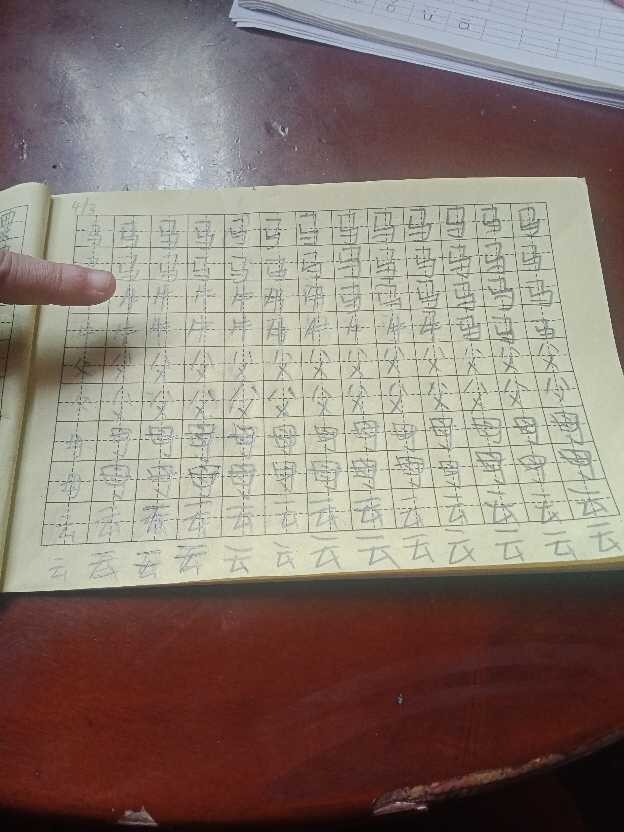 4/3
马马马马马马马马马马马马马
马马马马马马马马马马马马
牛牛牛牛牛牛马马马马马马
牛牛牛牛牛牛牛牛牛牛马马马
父父父父父父父父父父父父父
父父父父父父父父父父父父父
母母母母母母母母母母母母母
母母母母母母母母母母母母母
云云云云云云云云云云云云云
云云云云云云云云云云云云云